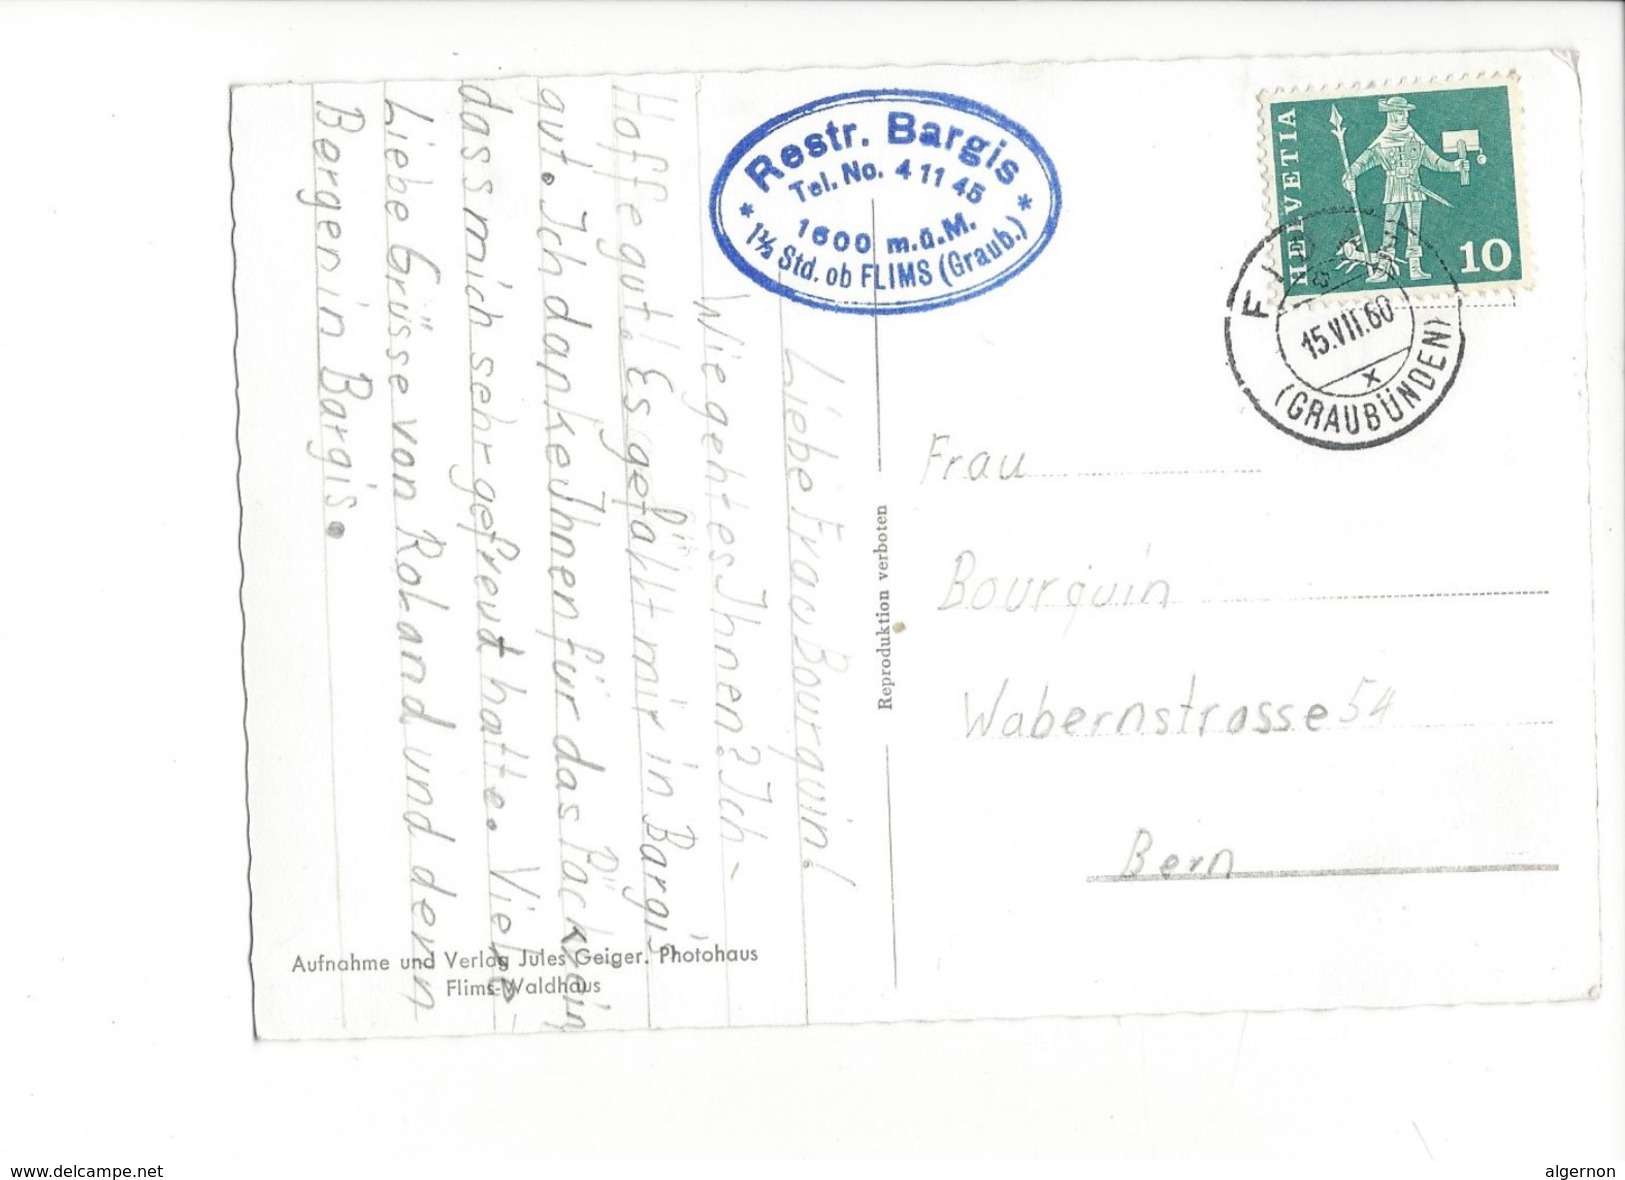 Restr. Bargis
Tel. No. 4 11 45
* 1600 m.ü.M. *
1½ Std. ob FLIMS (Graub.)
HELVETIA
10
15.VII.60
x
(GRAUBÜNDEN)
Liebe Frau Bourquin!
Wie geht es Ihnen? Ich
Hoffe gut! Es gefällt mir in Bargis
gut. Ich danke Ihnen für das Päcklein
dass mich sehr gefreut hatte. Viele
Liebe Grüsse von Roland und den
Bergen in Bargis.
Reproduktion verboten
Frau
Bourquin
Wabernstrasse 54
Bern
Aufnahme und Verlag Jules Geiger. Photohaus
Flims-Waldhaus
www.delcampe.net
algernon